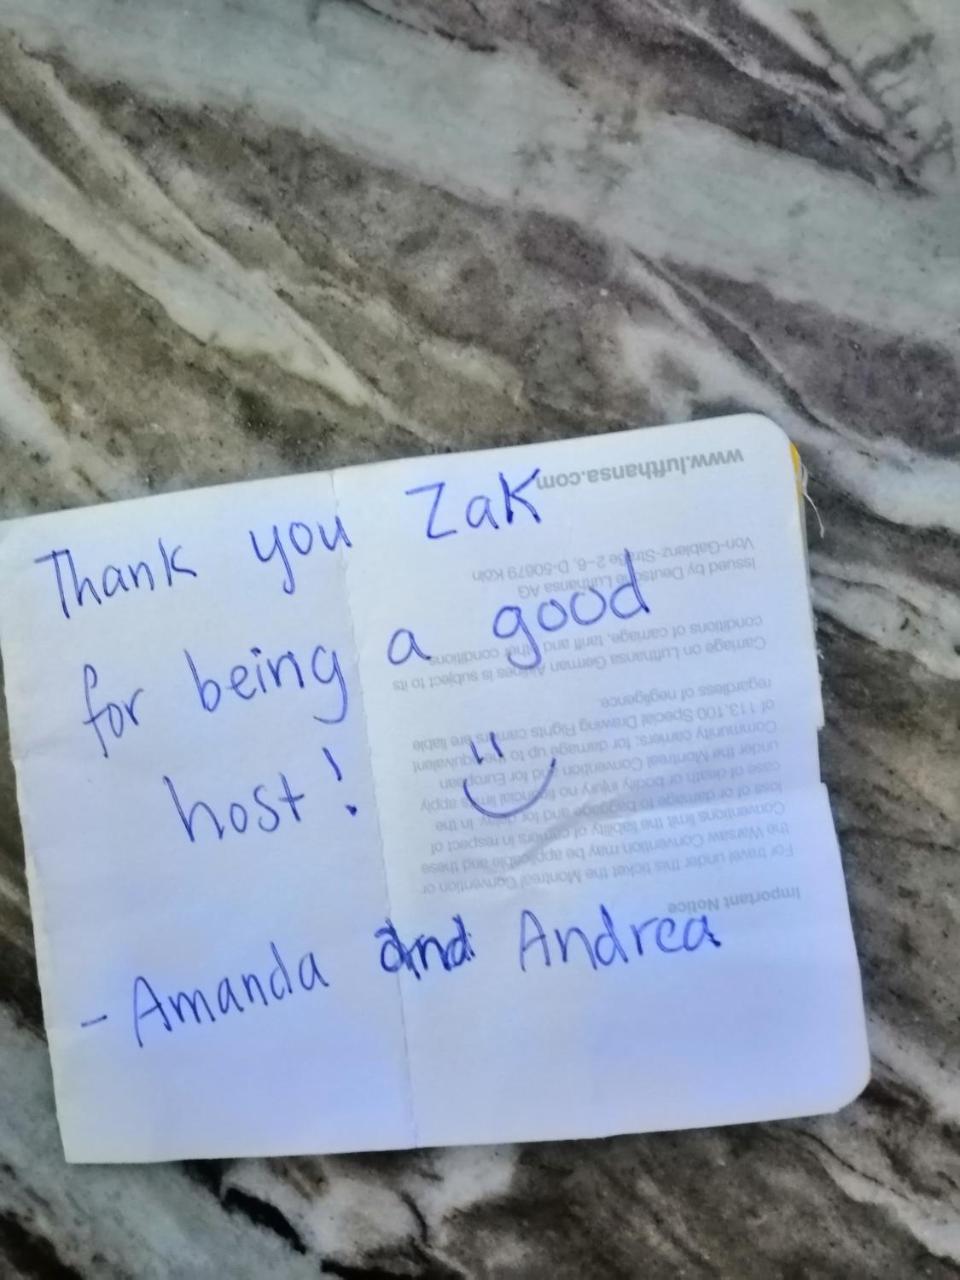 Thank you Zak
for being a good
host!
- Amanda and Andrea
Important Notice
For travel under this ticket the Montreal Convention or
the Warsaw Convention may be applicable and these
Conventions limit the liability of carriers in respect of
loss of or damage to baggage and for delay. In the
case of death or bodily injury no financial limits apply
under the Montreal Convention and for European
Community carriers, for damage up to the equivalent
of 113.100 Special Drawing Rights carriers are liable
regardless of negligence.
Carriage on Lufthansa German Airlines is subject to its
conditions of carriage, tariff and other conditions
Issued by Deutsche Lufthansa AG
Von-Gablenz-Straße 2-6, D-50679 Köln
www.lufthansa.com